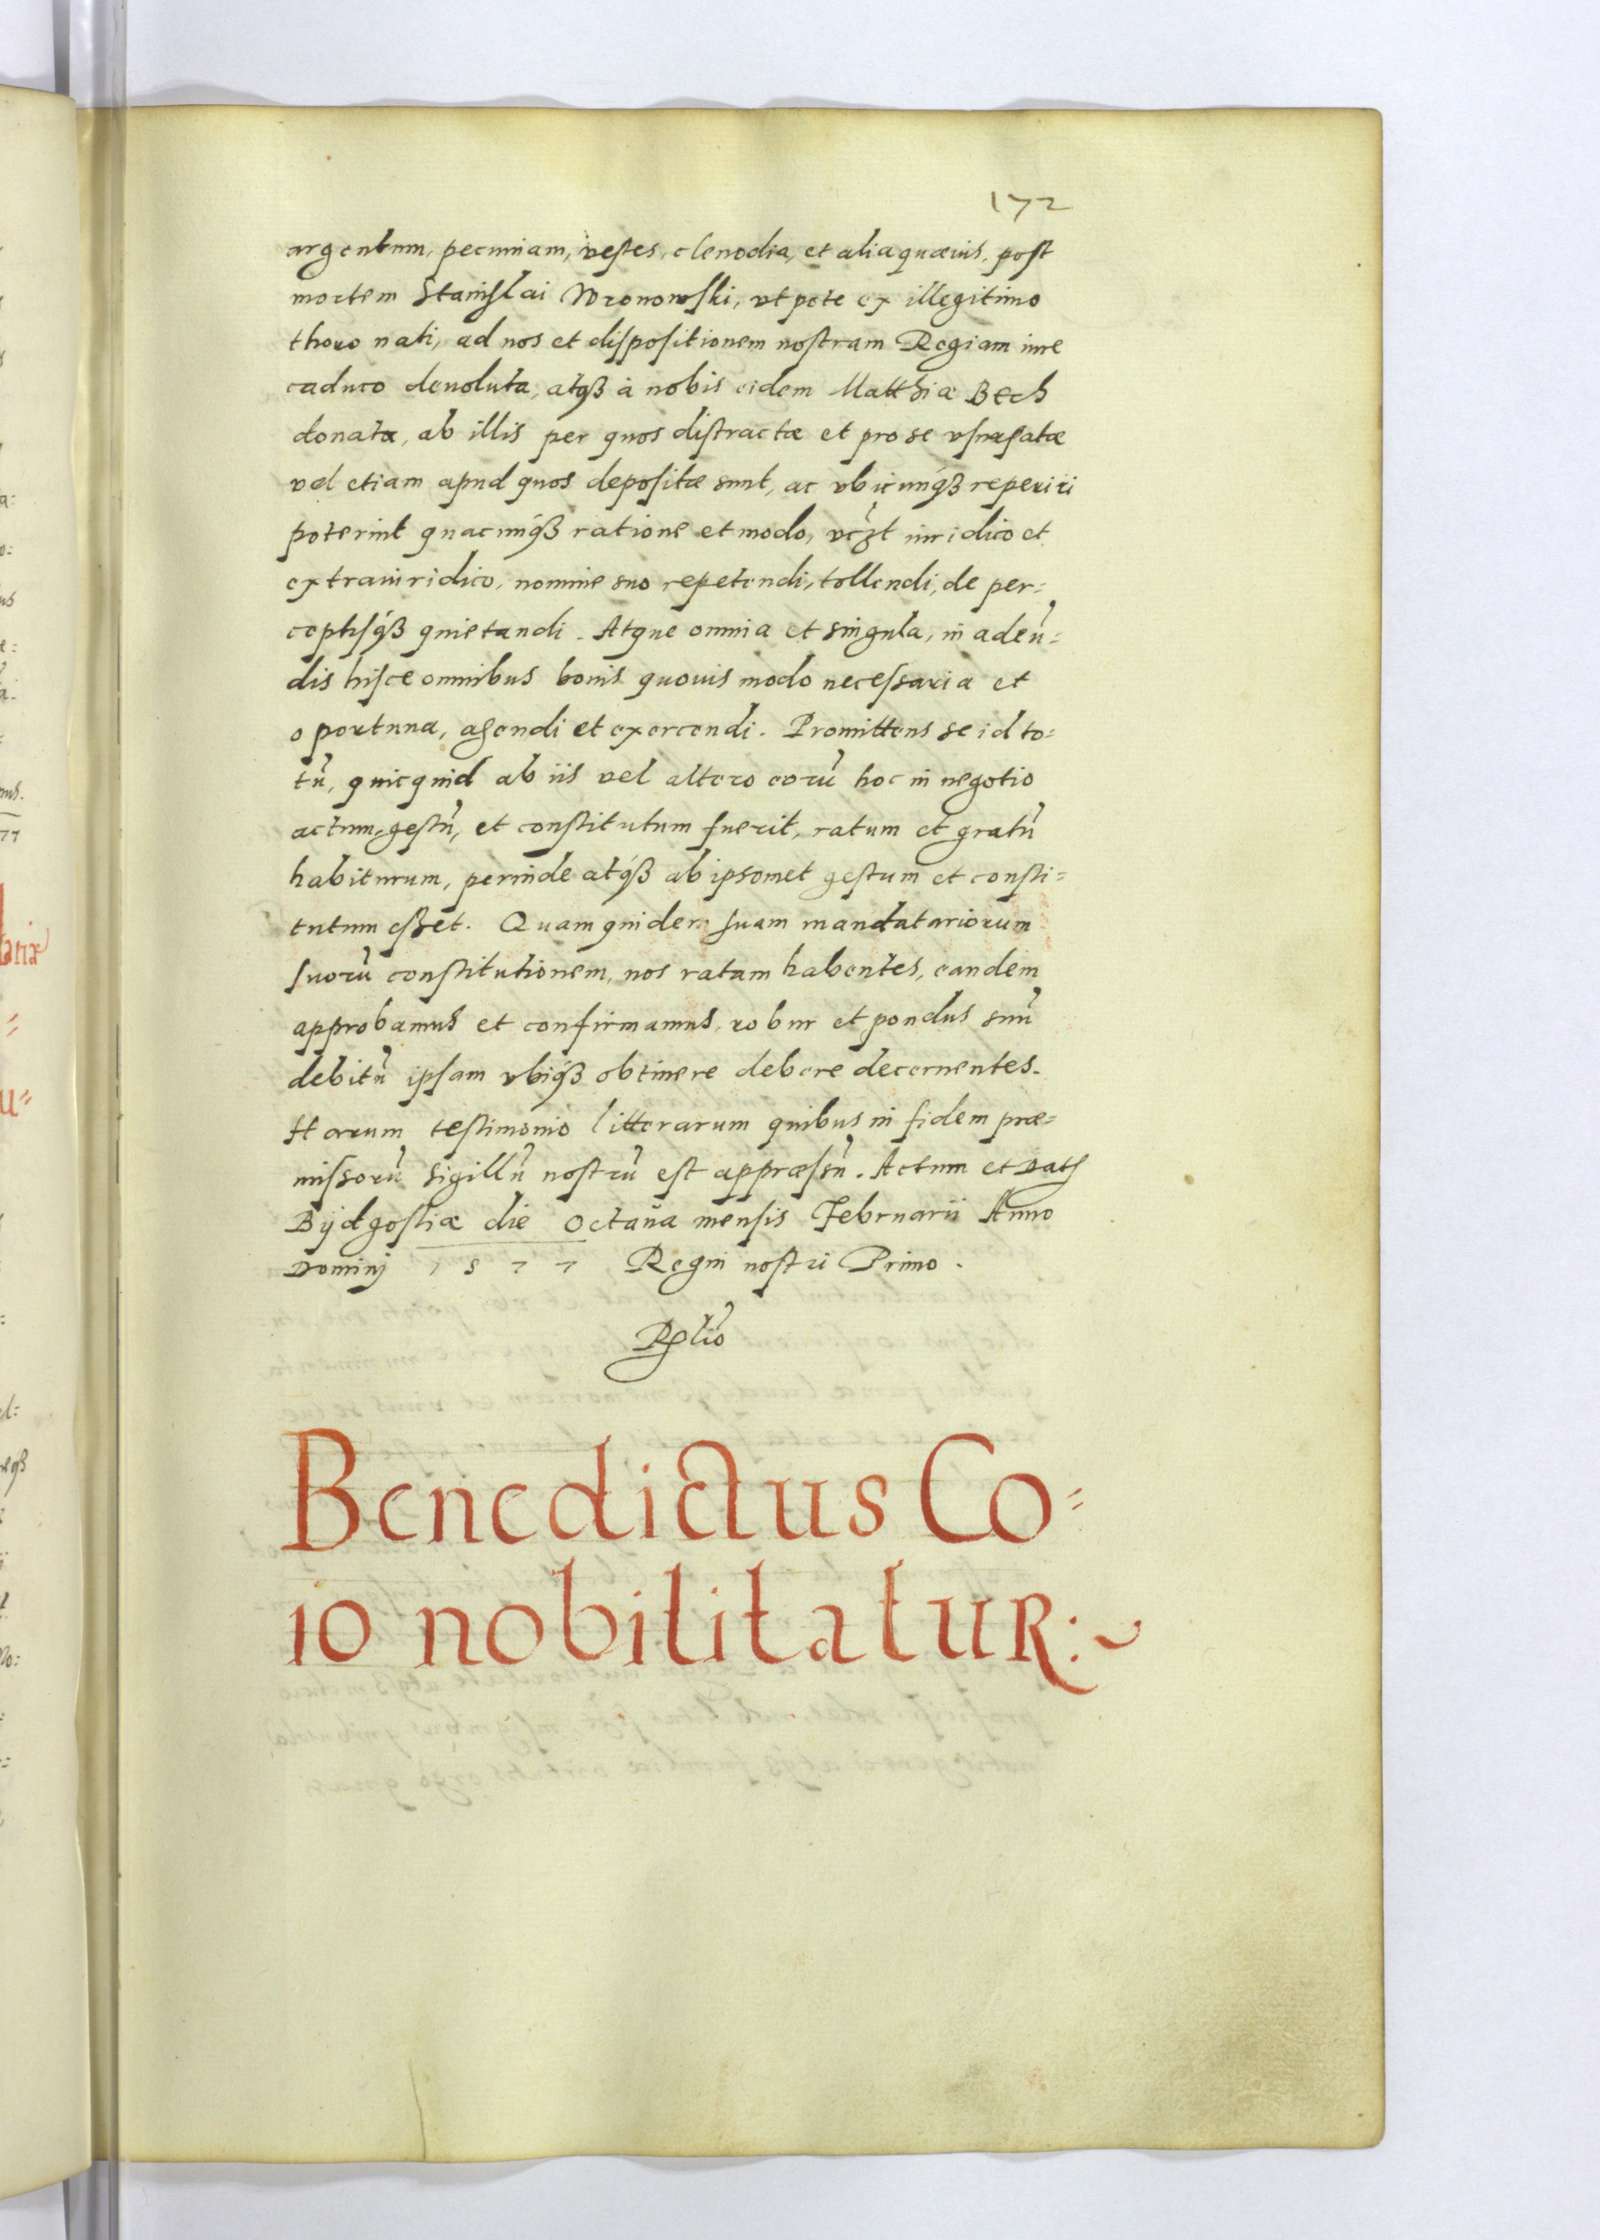 172
argentum, pecuniam, vestes, clenodia, et alia quævis, post
mortem Stanislai Wronowski, ut pote ex illegitimo
thoro nati, ad nos et dispositionem nostram Regiam iure
caduco devoluta, atqß à nobis eidem Matthiæ Bech
donata, ab illis per quos distractæ et pro se usurpatæ
vel etiam apud quos depositæ sunt, ac ubicunqß reperiri
poterint quacunqß ratione et modo, iuridico et
extraiuridico, nomine suo repetendi, tollendi, de per=
ceptisqß quietandi. Atque omnia et singula, in adeu̅=
dis hisce omnibus bonis quovis modo necessaria et
oportuna, agendi et exercendi. Promittens se id to=
tu̅, quicquid ab iis vel altero eoru̅ hoc in negotio
actum, gestu̅, et constitutum fuerit, ratum et gratu̅
habiturum, perinde atqß ab ipsomet gestum et consti=
tutum esset. Quam quidem suam mandatariorum
suoru̅ constitutionem, nos ratam habentes, eandem
approbamus et confirmamus, robur et pondus suu̅
debitu̅ ipsam ubiqß obtinere debere decernentes.
Harum testimonio litterarum quibus in fidem præ=
missoru̅ sigillu̅ nostru̅ est appræssu̅. Actum et Dat
Bÿdgostiæ die Octava mensis Februarii Anno
Dominj 1577 Regni nostri Primo.
Benedictus Co=
io nobilitatur:~